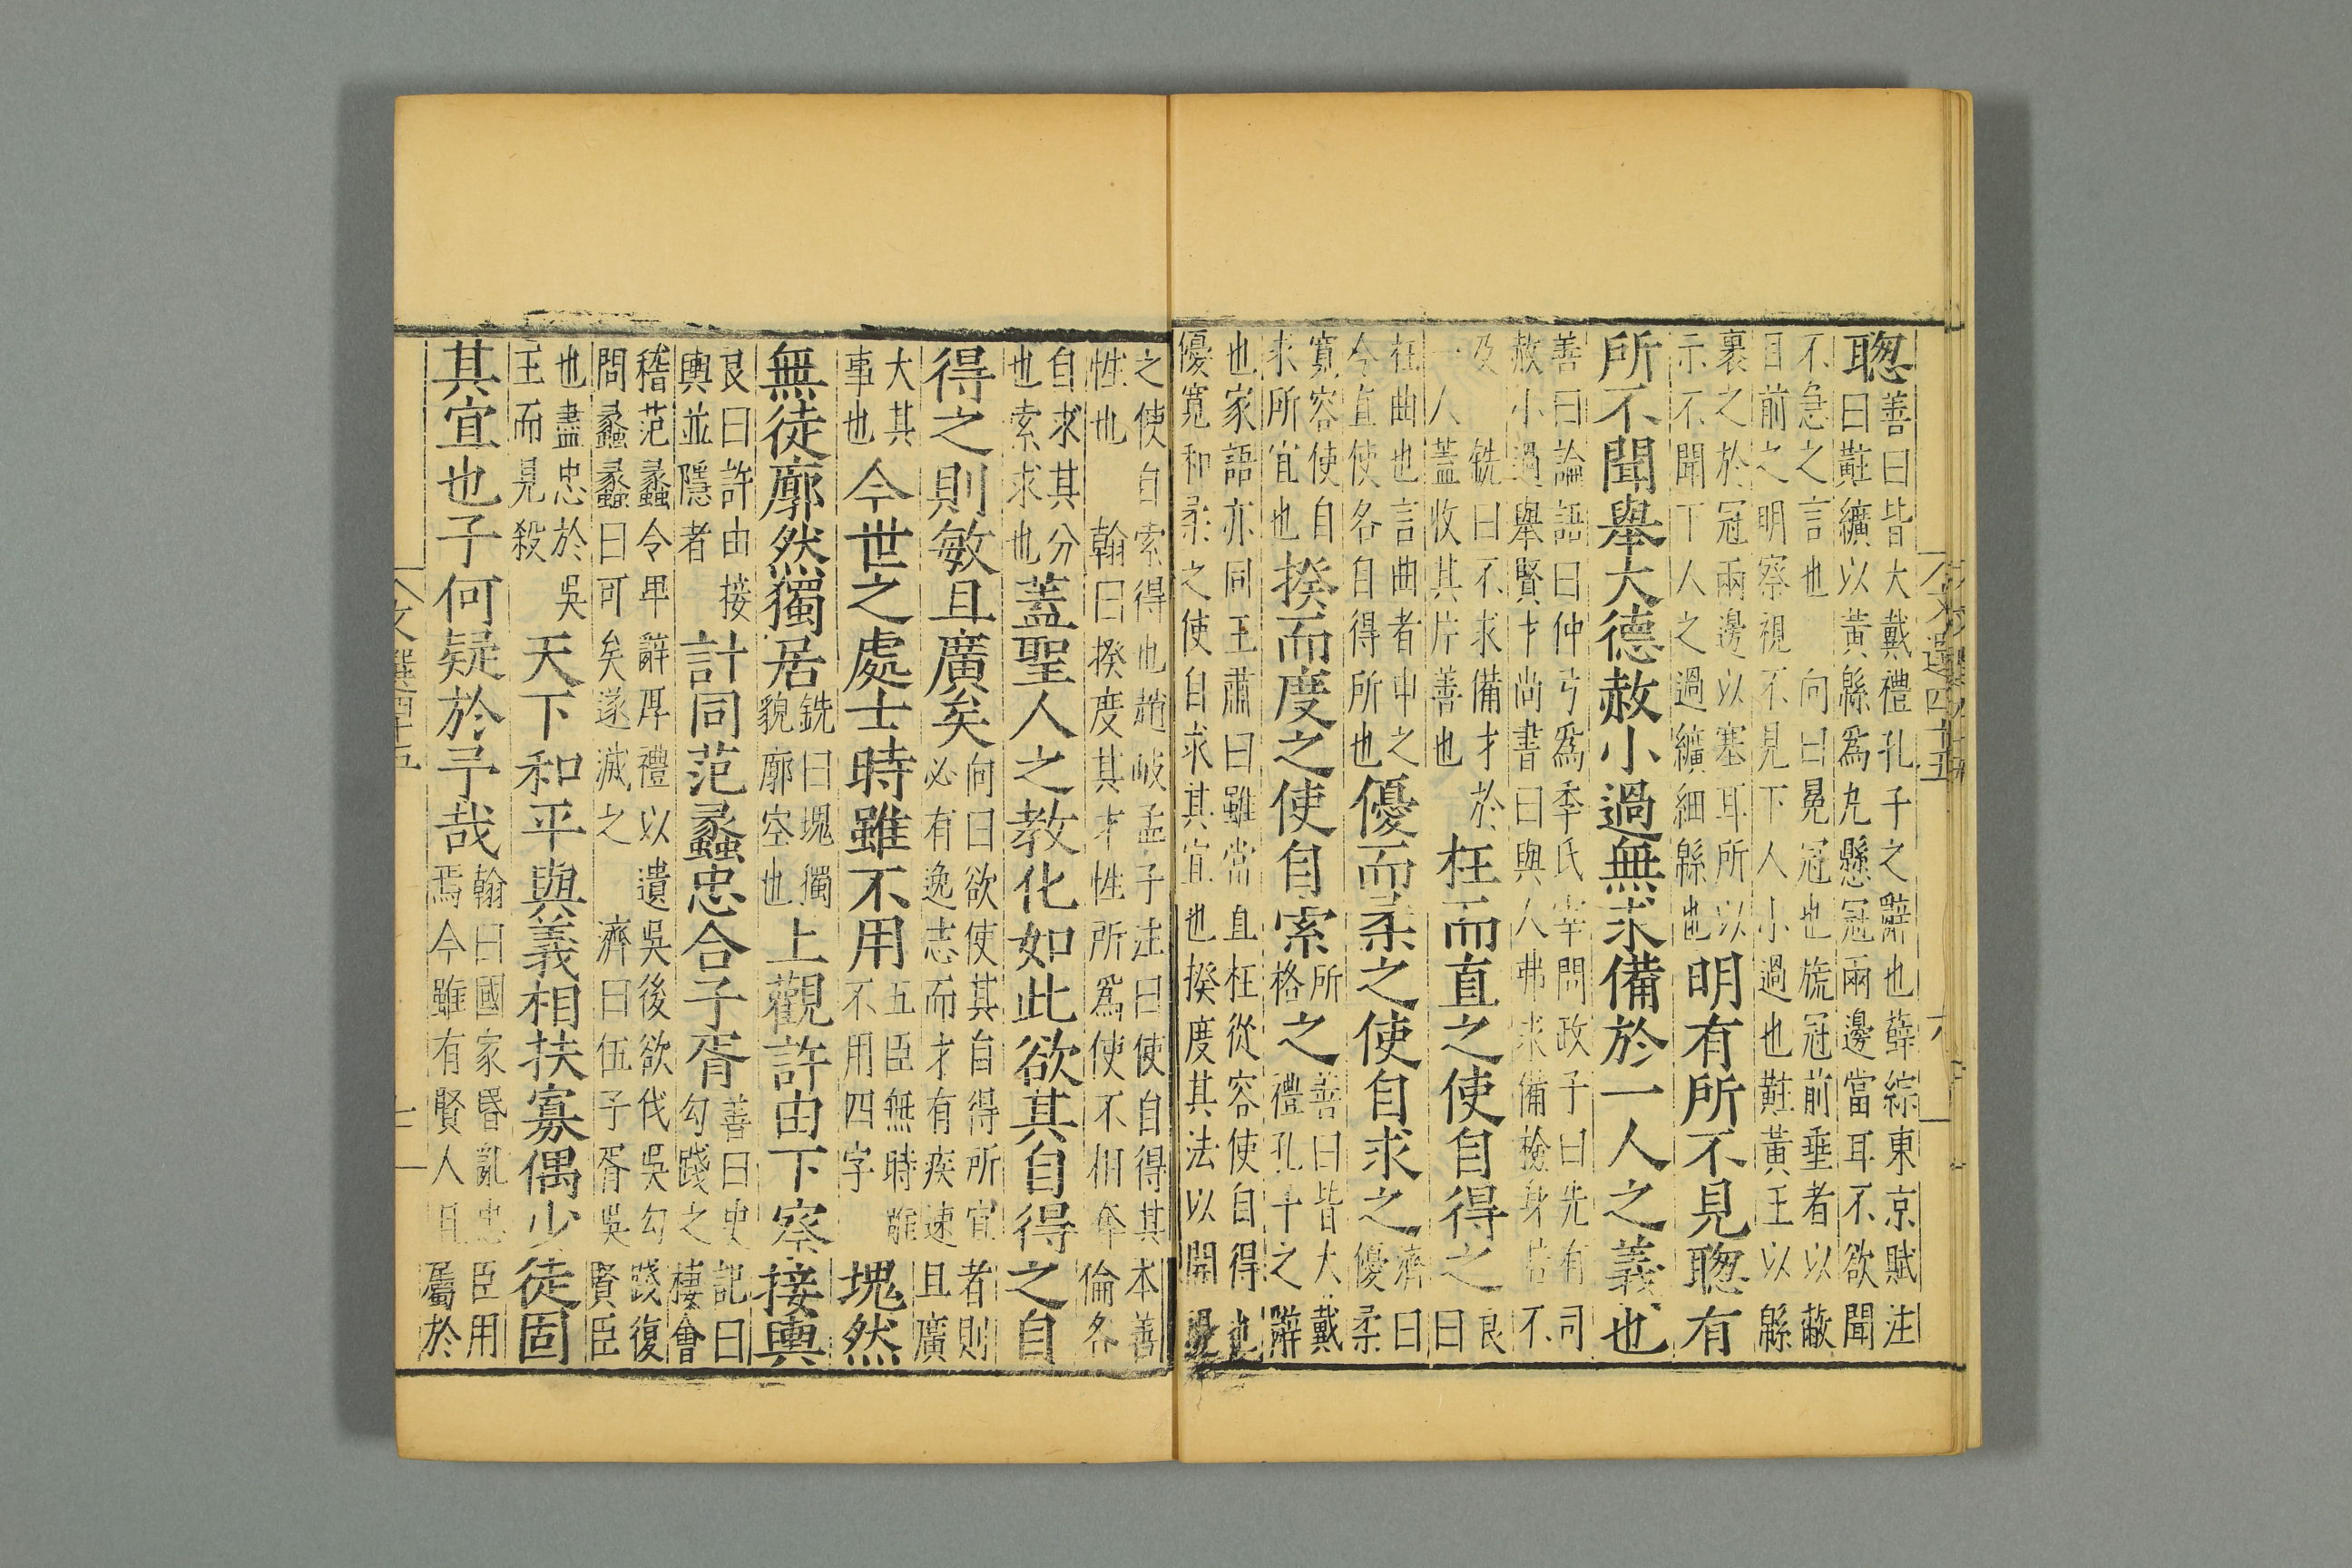 聦善曰皆大戴禮孔子之辭也薛綜東京賦注
曰黈纊以黃緜爲丸懸冠兩邊當耳不欲聞
不急之言也 向曰冕冠也旒冠前垂者以蔽
目前之明察視不見下人小過也黈黃王以緜
裹之於冠兩邊以塞耳所以
示不聞下人之過纊細緜也明有所不見聦有
所不聞舉大德赦小過無求備於一人之義也
善曰論語曰仲弓爲季氏宰問政子曰先有司
赦小過舉賢才尚書曰與人弗求備檢身若不
及 銑曰不求備才於
一人蓋收其片善也枉而直之使自得之良曰
枉曲也言曲者申之
令直使各自得所也優而柔之使自求之濟曰優柔
寬容使自
求所宜也揆而度之使自索所格之善曰皆大戴禮孔子之辭
也家語亦同王肅曰雖當直枉從容使自得也
優寬和柔之使自求其宜也揆度其法以開視
之使自索得也趙岐孟子注曰使自得其本善
性也 翰曰揆度其才性所爲使不相奪倫各
自求其分
也索求也蓋聖人之教化如此欲其自得之自
得之則敏且廣矣向曰欲使其自得所宜者則必有逸志而才有疾速且廣
大其
事也今世之處士時雖不用五臣無時雖不用四字塊然
無徒廓然獨居銑曰塊獨貌廓空也上觀許由下察接輿
良曰許由接
輿並隱者計同范蠡忠合子胥善曰史記曰勾踐之棲會
稽范蠡令卑辭厚禮以遺吳後欲伐吳勾踐復
問蠡蠡曰可矣遂滅之 濟曰伍子胥吳賢臣
也盡忠於吳
王而見殺天下和平與義相扶寡偶少徒固
其宜也子何疑於予哉翰曰國家昬亂忠臣用焉今雖有賢人且屬於
文選四十五